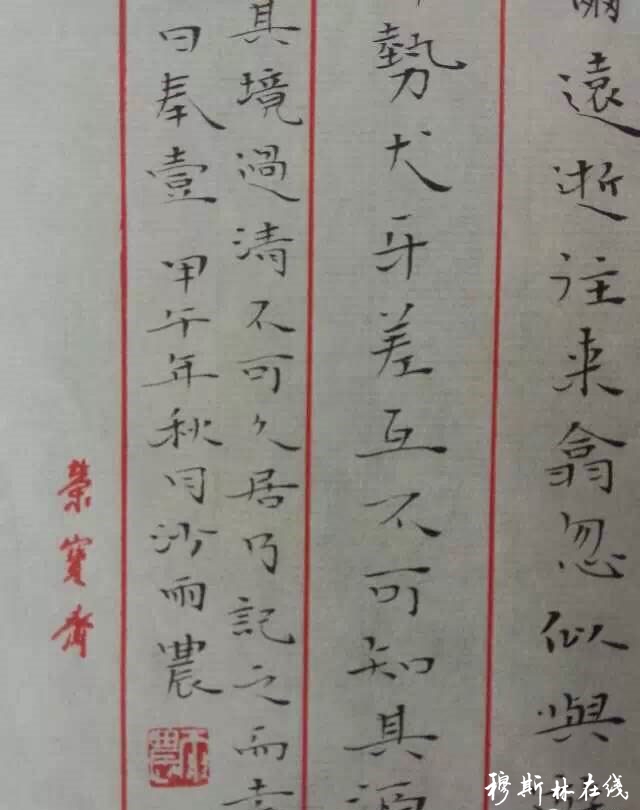 遠逝往来翕忽似與
勢犬牙差互不可知其源
其境過清不可久居乃記之而去
曰奉壹 甲午年秋月沙雨農
榮寶齋
穆斯林在线